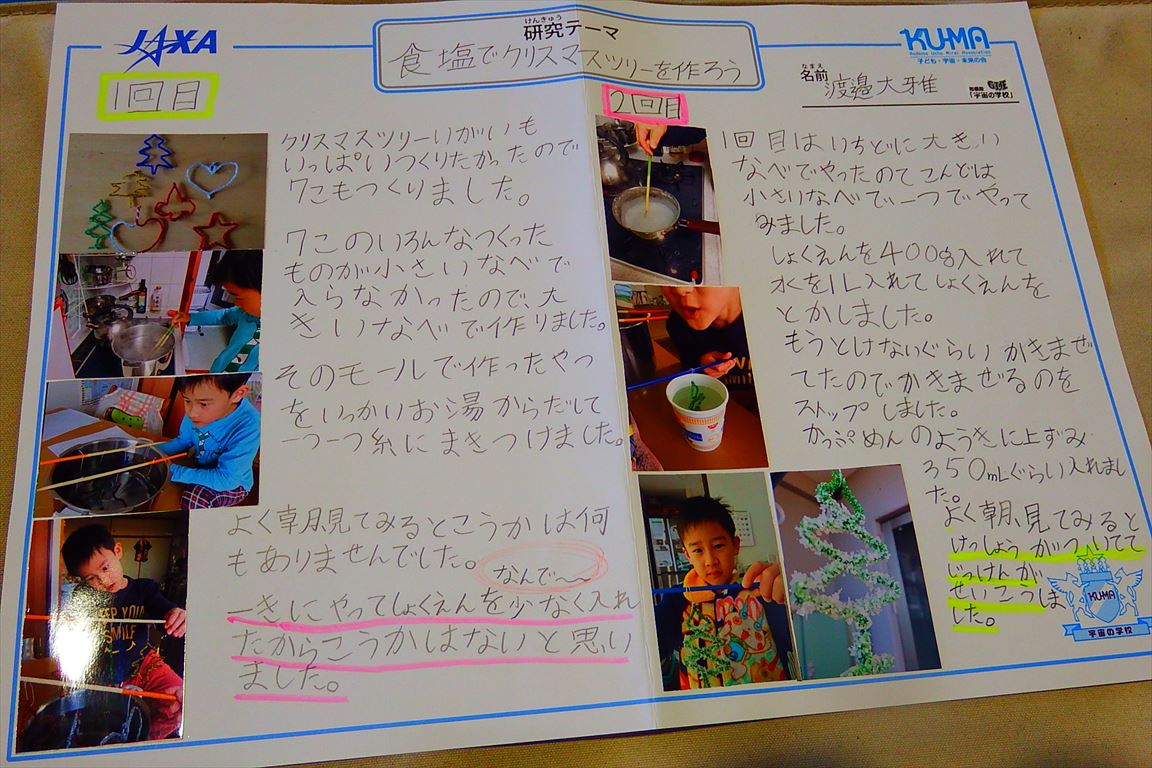 JAXA
けんきゅう
研究テーマ
食塩でクリスマスツリーを作ろう
KU-MA
Kodomo Uchu Mirai Association
子ども・宇宙・未来の会
なまえ
名前 渡邉大雅
「宇宙の学校」
1回目
クリスマスツリーいがいも
いっぱいつくりたかったので
7こもつくりました。
7このいろんなつくった
ものが小さいなべで
入らなかったので大
きいなべで作りました。
そのモールで作ったやつ
をいっかいお湯からだして
一つ一つ糸にまきつけました。
よく朝、見てみるとこうかは何
もありませんでした。
なんで〜
一きにやってしょくえんを少なく入れ
たからこうかはないと思い
ました。
2回目
1回目はいちどに大きい
なべでやったのでこんどは
小さいなべで一つでやって
みました。
しょくえんを400g入れて
水を1L入れてしょくえんを
とかしました。
もうとけないぐらいかきまぜ
てたのでかきまぜるのを
ストップしました。
かっぷめんのようきに上ずみ
350mLぐらい入れまし
た。
よく朝、見てみると
けっしょうがついてて
じっけんが
せいこうしま
した。
KUMA
宇宙の学校